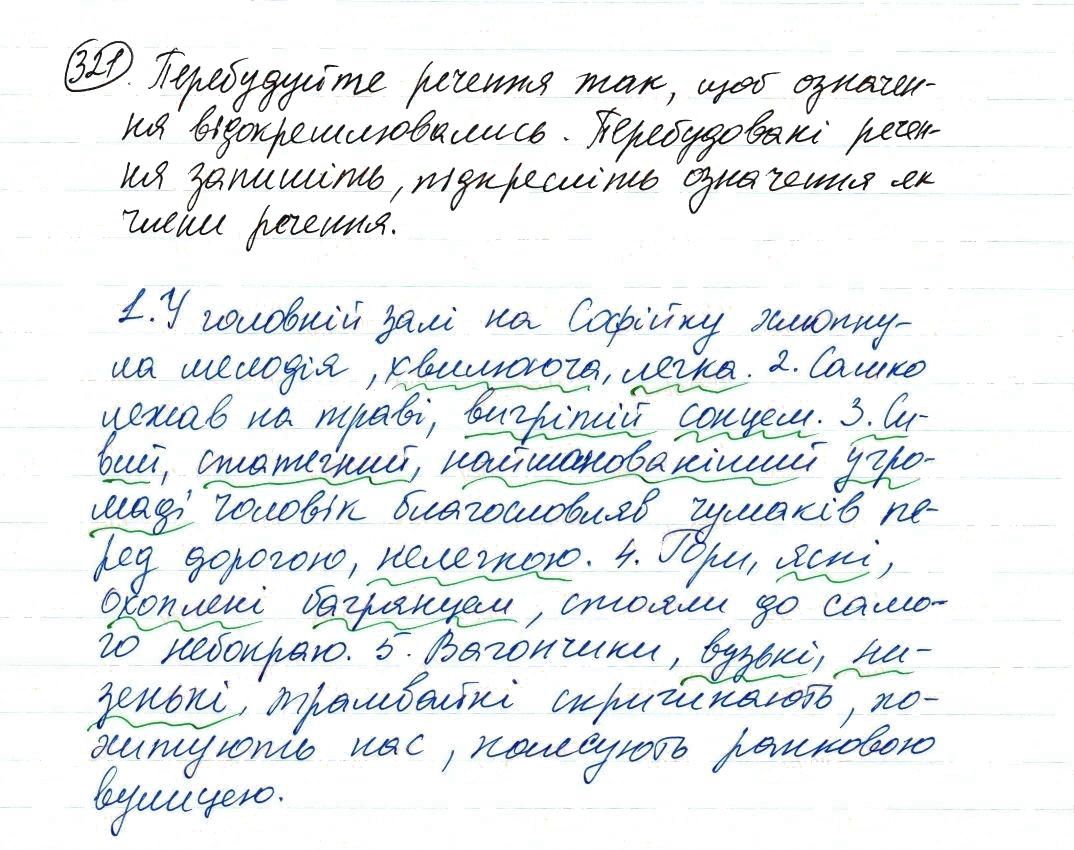 321. Перебудуйте речення так, щоб означен-
ня відокремлювались. Перебудовані речен-
ня запишіть, підкресліть означення як
члени речення.
1. У головній залі на Софійку хлюпну-
ла мелодія, хвилююча, легка. 2. Сашко
лежав на траві, вигрітій сонцем. 3. Си-
вий, статечний, найшанованіший у гро-
маді чоловік благословляв чумаків пе-
ред дорогою, нелегкою. 4. Гори, ясні,
охоплені багрянцем, стояли до само-
го небокраю. 5. Вагончики, вузькі, ни-
зенькі, трамвайні скричикають, по-
хитують нас, колесують ранковою
вулицею.